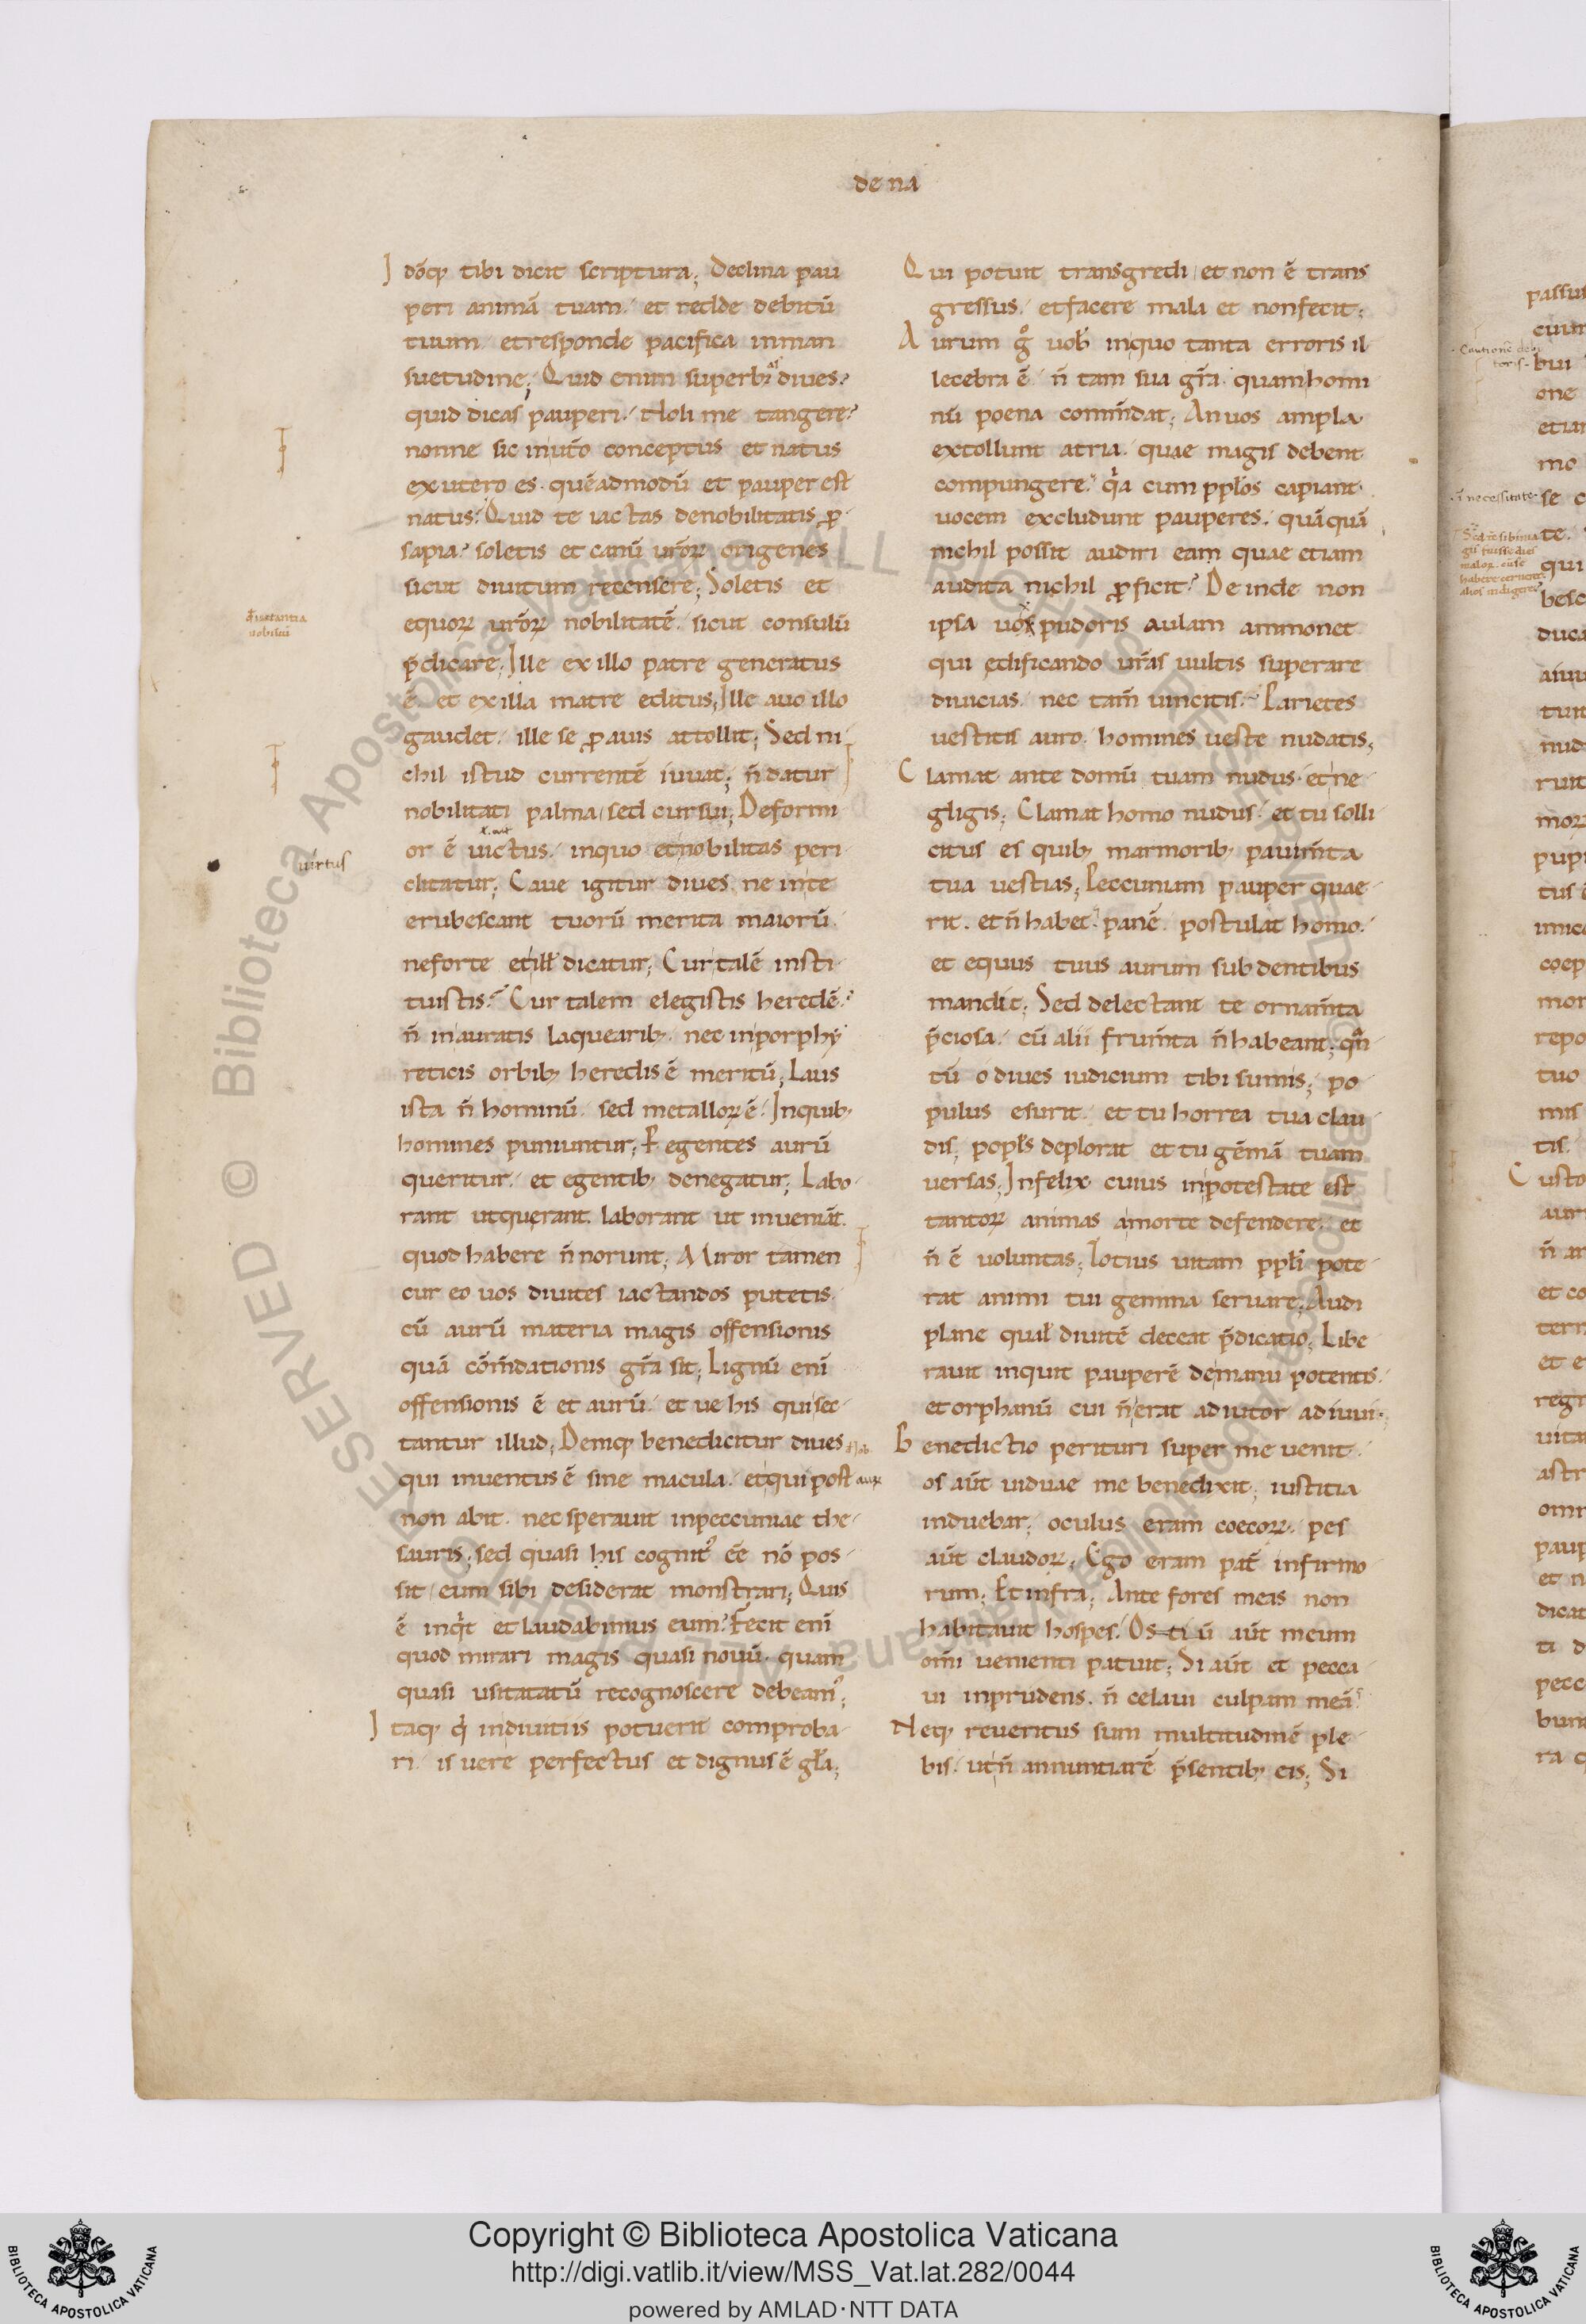 de na
Idōq; tibi dicit scriptura; Declina pau
peri animā tuam. et redde debitū
tuum. et responde pacifica in man
suetudine; Quid enim superbis dives?
quid dicas pauperi. Noli me tangere?
nonne sic in utō conceptus et natus
ex utero es. quēadmodū et pauper est
natus? Quid te iactas de nobilitatis ꝓ
sapia? soletis et canū uroꝝ origenes
sicut divitum recensere; Soletis et
equoꝝ uroꝝ nobilitatē. sicut consulū
p̄dicare; Ille ex illo patre generatus
ē. et ex illa matre editus; Ille avo illo
gaudet. ille se ꝓavis attollit; Sed ni
chil istud currentē iuvat; n̄ datur
nobilitati palma sed cursui; Deformi
or ē victus. in quo et nobilitas peri
clitatur; Cave igitur dives. ne in te
erubescant tuorū merita maiorū.
ne forte et ill̄ dicatur; Cur talē insti
tuistis? Cur talem elegistis heredē?
n̄ in auratis laquearib; nec in porphy
reticis orbib; heredis ē meritū; Laus
ista n̄ hominū. sed metalloꝝ ē. In quib;
homines puniuntur; Per egentes aurū
queritur. et egentib; denegatur; Labo
rant ut querant. laborant ut inveniāt.
quod habere n̄ norunt; Miror tamen
cur eo vos divites iactandos putetis.
cū aurū materia magis offensionis
quā cōm̄dationis gr̄a sit; Lignū enī
offensionis ē et aurū. et ve his qui sec
tantur illud; Deniq; benedicitur dives
qui inventus ē sine macula. et qui post aurū
non abit. nec speravit in peccuniae the
sauris; sed quasi his cognit᾿ ēe nō pos
sit eum sibi desiderat monstrari; Quis
ē inqͥt et laudabimus eum? Fecit enī
quod mirari magis quasi novū. quam
quasi usitatatū recognoscere debeam᾿;
Itaq; qͥ in divitiis potuerit comproba
ri. is vere perfectus et dignus ē gl̄a;
distantia
nobiscū
virtus
Qui potuit transgredi et non ē trans
gressus. et facere mala et non fecit;
Aurum gͦ vob̄ in quo tanta erroris il
lecebra ē. n̄ tam sua gr̄a. quam homi
nū poena comm̄dat; An vos ampla
extollunt atria. quae magis debent
compungere? qͥa cum ppl̄os capiant.
vocem excludunt pauperes. quāquā
nichil possit audiri eam quae etiam
audita nichil ꝓficit? De inde non
ipsa vos pudoris aulam ammonet
qui ędificando uras vultis superare
divicias. nec tam̄ vincitis? Parietes
vestitis auro. homines veste nudatis;
Clamat ante domū tuam nudus. et ne
gligis; Clamat homo nudus. et tu solli
citus es quib; marmorib; pavim̄ta
tua vestias; Peccuniam pauper quae
rit. et n̄ habet. panē postulat homo.
et equus tuus aurum sub dentibus
mandit; Sed delectant te ornam̄ta
p̄ciosa. cū alii frum̄ta n̄ habeant; qn̄
tū o dives iudicium tibi sumis; po
pulus esurit. et tu horrea tua clau
dis; popl̄s deplorat et tu gēmā tuam
versas; Infelix cuius in potestate est
tantoꝝ animas a morte defendere. et
n̄ ē voluntas; Totius vitam ppl̄i pote
rat animi tui gemma servare; Audi
plane qual̄ divitē deceat p̄dicatio; Libe
ravit inquit pauperē de manu potentis.
et orphanū cui n̄ erat adiutor adiuvi.
Benedictio perituri super me venit.
os aūt viduae me benedixit; iustitia
induebar; oculus eram coecoꝝ. pes
aūt claudoꝝ; Ego eram pat̄ infirmo
rum; Et infra; Ante fores meas non
habitavit hospes. Ostiū aūt meum
om̄i venienti patuit; Si aūt et pecca
vi inprudens. n̄ celavi culpam meā
Neq; reveritus sum multitudinē ple
bis. ut n̄ annuntiarē p̄sentib; eis; Si
Copyright © Biblioteca Apostolica Vaticana
http://digi.vatlib.it/view/MSS_Vat.lat.282/0044
powered by AMLAD·NTT DATA